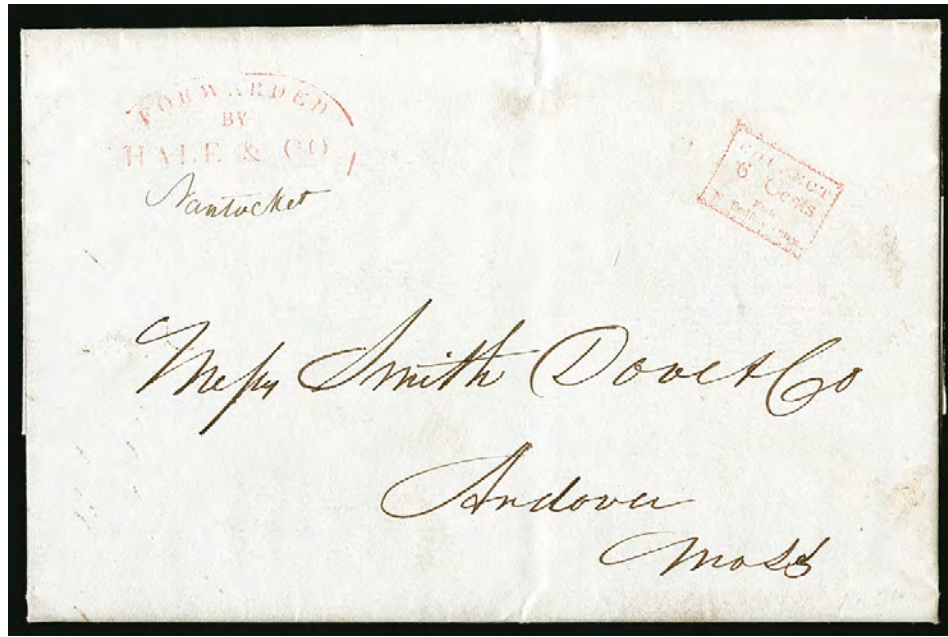 FORWARDED
BY
HALE & CO.
Nantucket
COLLECT
6 Cents
For
Messrs Smith Dove & Co
Andover
Mass